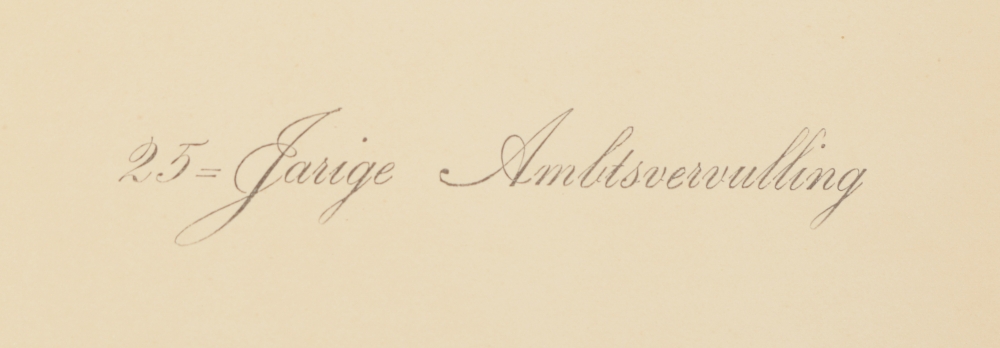 25=Jarige Ambtsvervulling